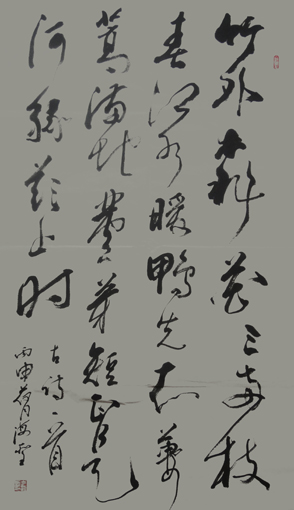 竹外桃花三两枝
春江水暖鴨先知蒌
蒿满地蘆芽短正是
河豚欲上时
古诗一首
丙申